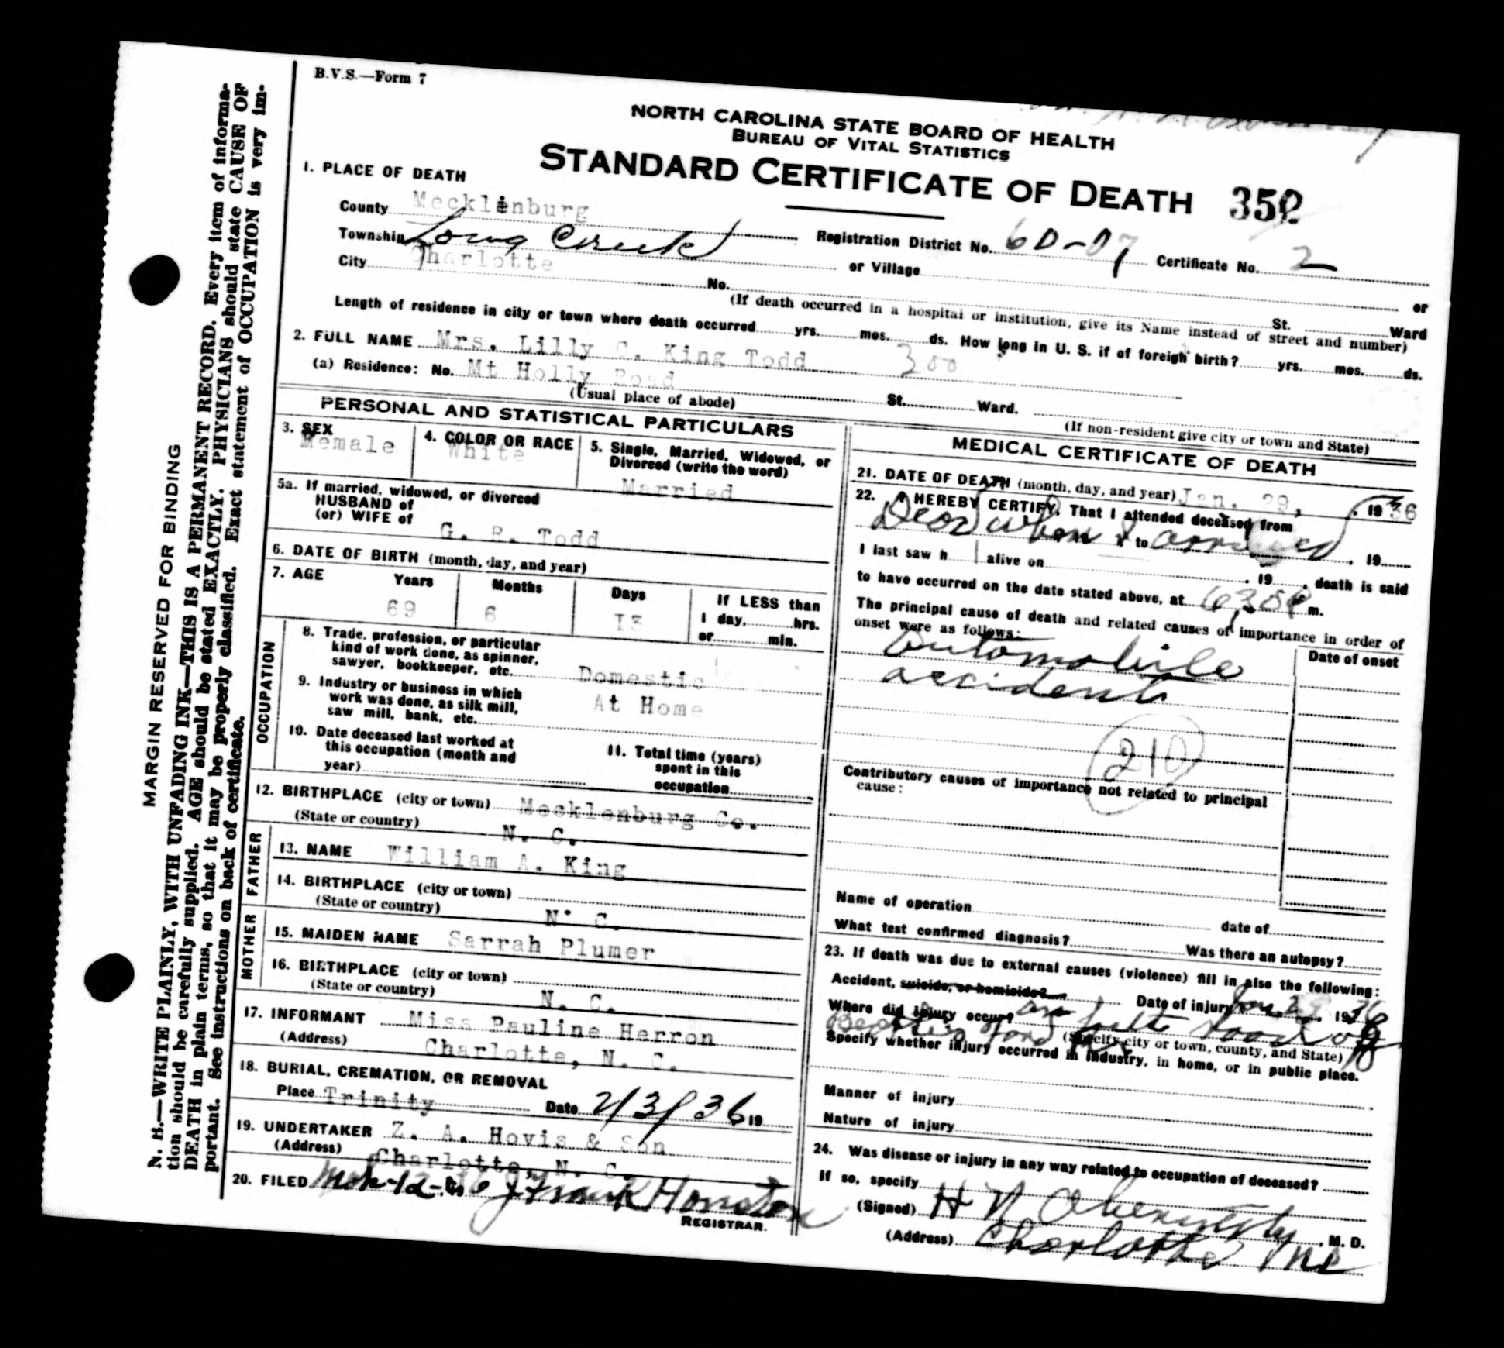 B.V.S.—Form 7
NORTH CAROLINA STATE BOARD OF HEALTH
BUREAU OF VITAL STATISTICS
STANDARD CERTIFICATE OF DEATH 352
1. PLACE OF DEATH
County Mecklenburg
Township Long Creek Registration District No. 60-07 Certificate No. 2
City Charlotte or Village
No. St. Ward or
(If death occurred in a hospital or institution, give its Name instead of street and number)
Length of residence in city or town where death occurred yrs. mos. ds. How long in U. S. if of foreign birth? yrs. mos. ds.
2. FULL NAME Mrs. Lilly C. King Todd 300
(a) Residence: No. Mt Holly Road St. Ward.
(Usual place of abode) (If non-resident give city or town and State)
PERSONAL AND STATISTICAL PARTICULARS
3. SEX
Memale
4. COLOR OR RACE
White
5. Single, Married, Widowed, or
Divorced (write the word)
Married
5a. If married, widowed, or divorced
HUSBAND of
(or) WIFE of
G. R. Todd
6. DATE OF BIRTH (month, day, and year)
7. AGE Years Months Days If LESS than
69 6 13 1 day, hrs.
or min.
OCCUPATION
8. Trade, profession, or particular
kind of work done, as spinner,
sawyer, bookkeeper, etc. Domestic
9. Industry or business in which
work was done, as silk mill, At Home
saw mill, bank, etc.
10. Date deceased last worked at
this occupation (month and
year)
11. Total time (years)
spent in this
occupation
12. BIRTHPLACE (city or town) Mecklenburg Co.
(State or country) N. C.
FATHER
13. NAME William A. King
14. BIRTHPLACE (city or town)
(State or country) N. C.
MOTHER
15. MAIDEN NAME Sarrah Plumer
16. BIRTHPLACE (city or town)
(State or country) N. C.
17. INFORMANT Miss Pauline Herron
(Address) Charlotte, N. C.
18. BURIAL, CREMATION, OR REMOVAL
Place Trinity Date 2/3/36 19
19. UNDERTAKER Z. A. Hovis & Son
(Address) Charlotte, N. C.
20. FILED J Frank Houston
REGISTRAR.
MEDICAL CERTIFICATE OF DEATH
21. DATE OF DEATH (month, day, and year) Jan. 29, 1936
22. I HEREBY CERTIFY, That I attended deceased from
Dead when I arrived to , 19
I last saw h alive on , 19 , death is said
to have occurred on the date stated above, at 6:30 P m.
The principal cause of death and related causes of importance in order of
onset were as follows:
Date of onset
Automobile
accident
210
Contributory causes of importance not related to principal
cause:
Name of operation date of
What test confirmed diagnosis? Was there an autopsy?
23. If death was due to external causes (violence) fill in also the following:
Accident, suicide, or homicide? Date of injury Jan 1936
Where did injury occur?
(Specify city or town, county, and State)
Specify whether injury occurred in industry, in home, or in public place.
Manner of injury
Nature of injury
24. Was disease or injury in any way related to occupation of deceased?
If so, specify
(Signed) H N M. D.
(Address) Charlotte NC
MARGIN RESERVED FOR BINDING
N. B.—WRITE PLAINLY, WITH UNFADING INK—THIS IS A PERMANENT RECORD. Every item of informa-
tion should be carefully supplied. AGE should be stated EXACTLY. PHYSICIANS should state CAUSE OF
DEATH in plain terms, so that it may be properly classified. Exact statement of OCCUPATION is very im-
portant. See instructions on back of certificate.